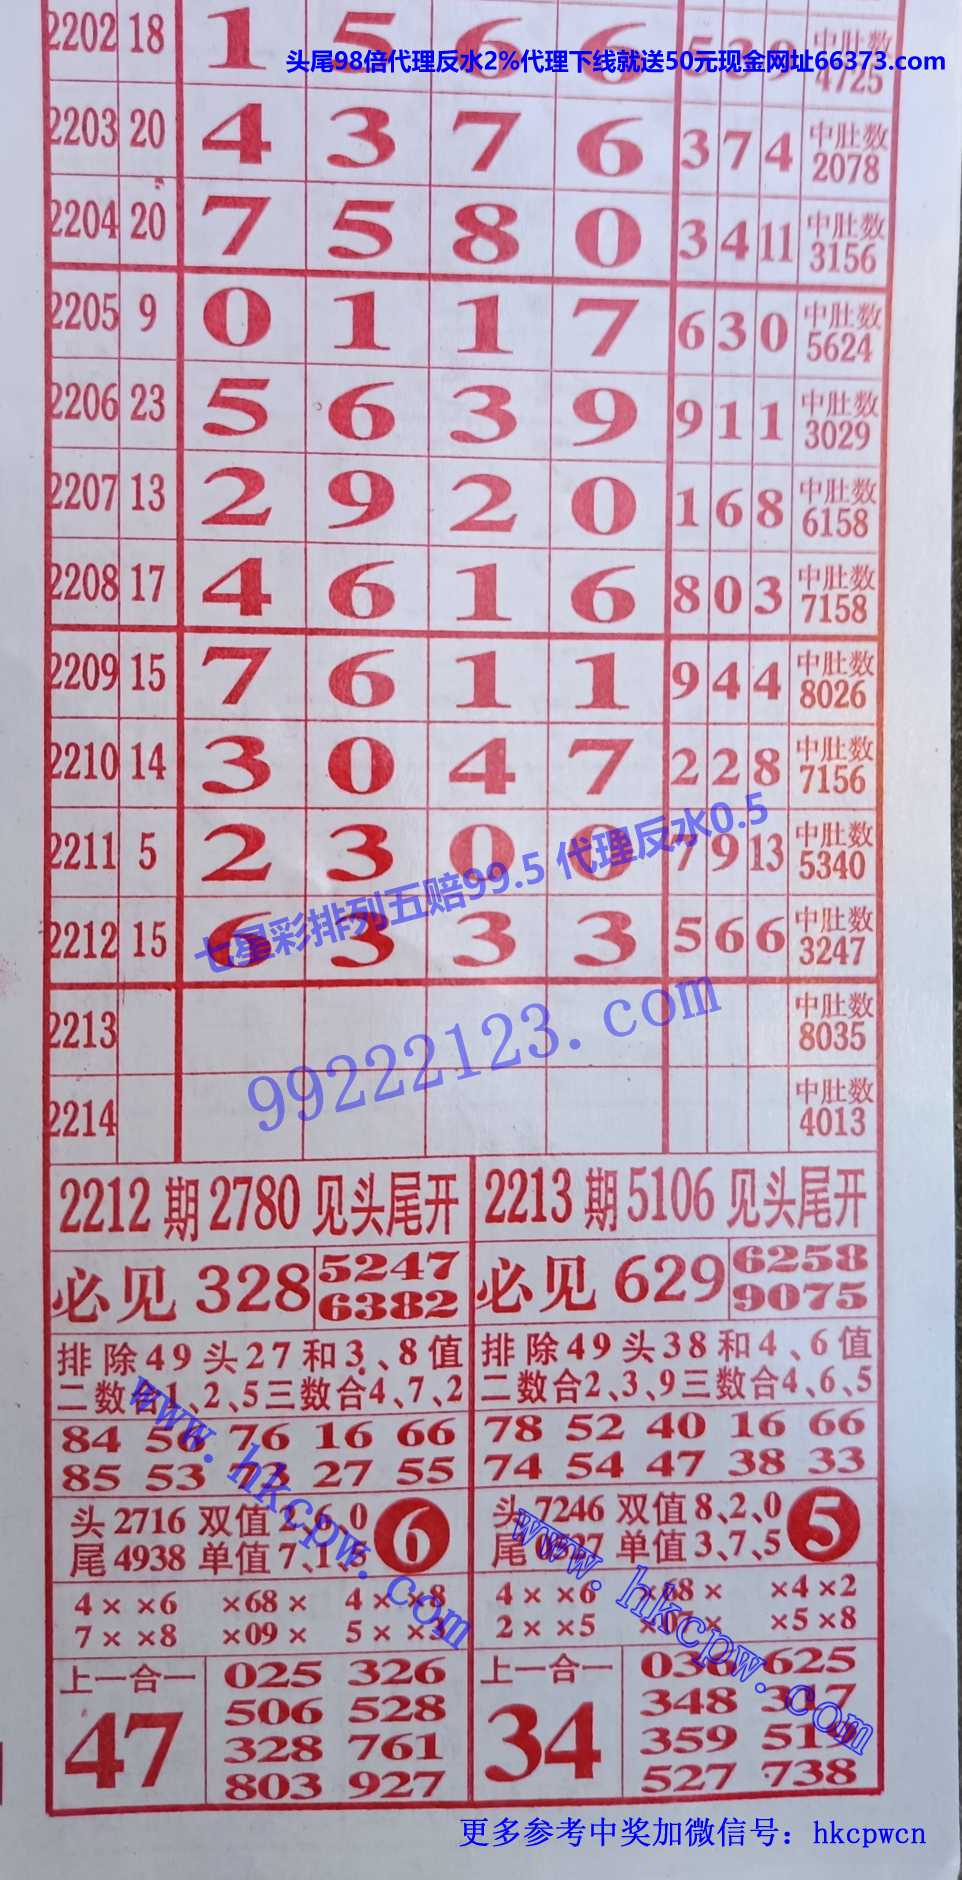 2202 18 1 5 6 6 5 3 9 中肚数
头尾98倍代理反水2%代理下线就送50元现金网址66373.com
4725
2203 20 4 3 7 6 3 7 4 中肚数
2078
2204 20 7 5 8 0 3 4 11 中肚数
3156
2205 9 0 1 1 7 6 3 0 中肚数
5624
2206 23 5 6 3 9 9 1 1 中肚数
3029
2207 13 2 9 2 0 1 6 8 中肚数
6158
2208 17 4 6 1 6 8 0 3 中肚数
7158
2209 15 7 6 1 1 9 4 4 中肚数
8026
2210 14 3 0 4 7 2 2 8 中肚数
7156
2211 5 2 3 0 0 7 9 13 中肚数
5340
七星彩排列五赔99.5 代理反水0.5
2212 15 6 3 3 3 5 6 6 中肚数
3247
99222123.com
2213 中肚数
8035
2214 中肚数
4013
2212期2780见头尾开
必见328
5247
6382
排除49头27和3、8值
二数合1、2、5三数合4、7、2
84 56 76 16 66
85 53 73 27 55
头2716 双值2、6、0
尾4938 单值7、1、5
6
4××6 ×68× 4××8
7××8 ×09× 5××
上一合一
47
025 326
506 528
328 761
803 927
www.hkcpw.com
2213期5106见头尾开
必见629
6258
9075
排除49头38和4、6值
二数合2、3、9三数合4、6、5
78 52 40 16 66
74 54 47 38 33
头7246 双值8、2、0
尾 单值3、7、5
5
4××6 ×68× ×4×2
2××5 ×07× ×5×8
上一合一
34
036 625
348 347
359 519
527 738
www.hkcpw.com
更多参考中奖加微信号：hkcpwcn